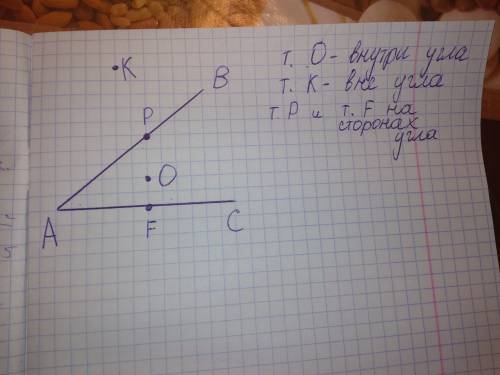 т. О - внутри угла
т. К - вне угла
т. Р и т. F на
сторонах
угла
K
B
P
O
A
F
C